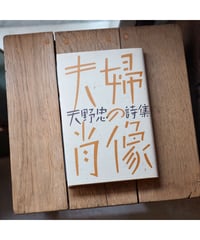 夫婦の肖像
天野忠詩集